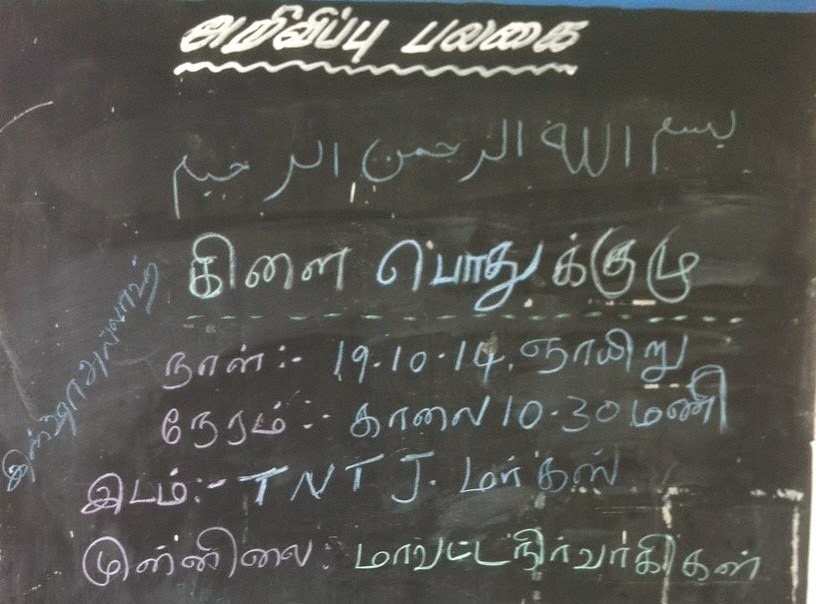 அறிவிப்பு பலகை
بسم الله الرحمن الرحيم
கிளை பொதுக்குழு
நாள்:- 19.10.14. ஞாயிறு
நேரம்:- காலை 10.30 மணி
இடம்:- TNTJ. மர்கஸ்
முன்னிலை: மாவட்டநிர்வாகிகள்
இன்ஷாஅல்லாஹ்